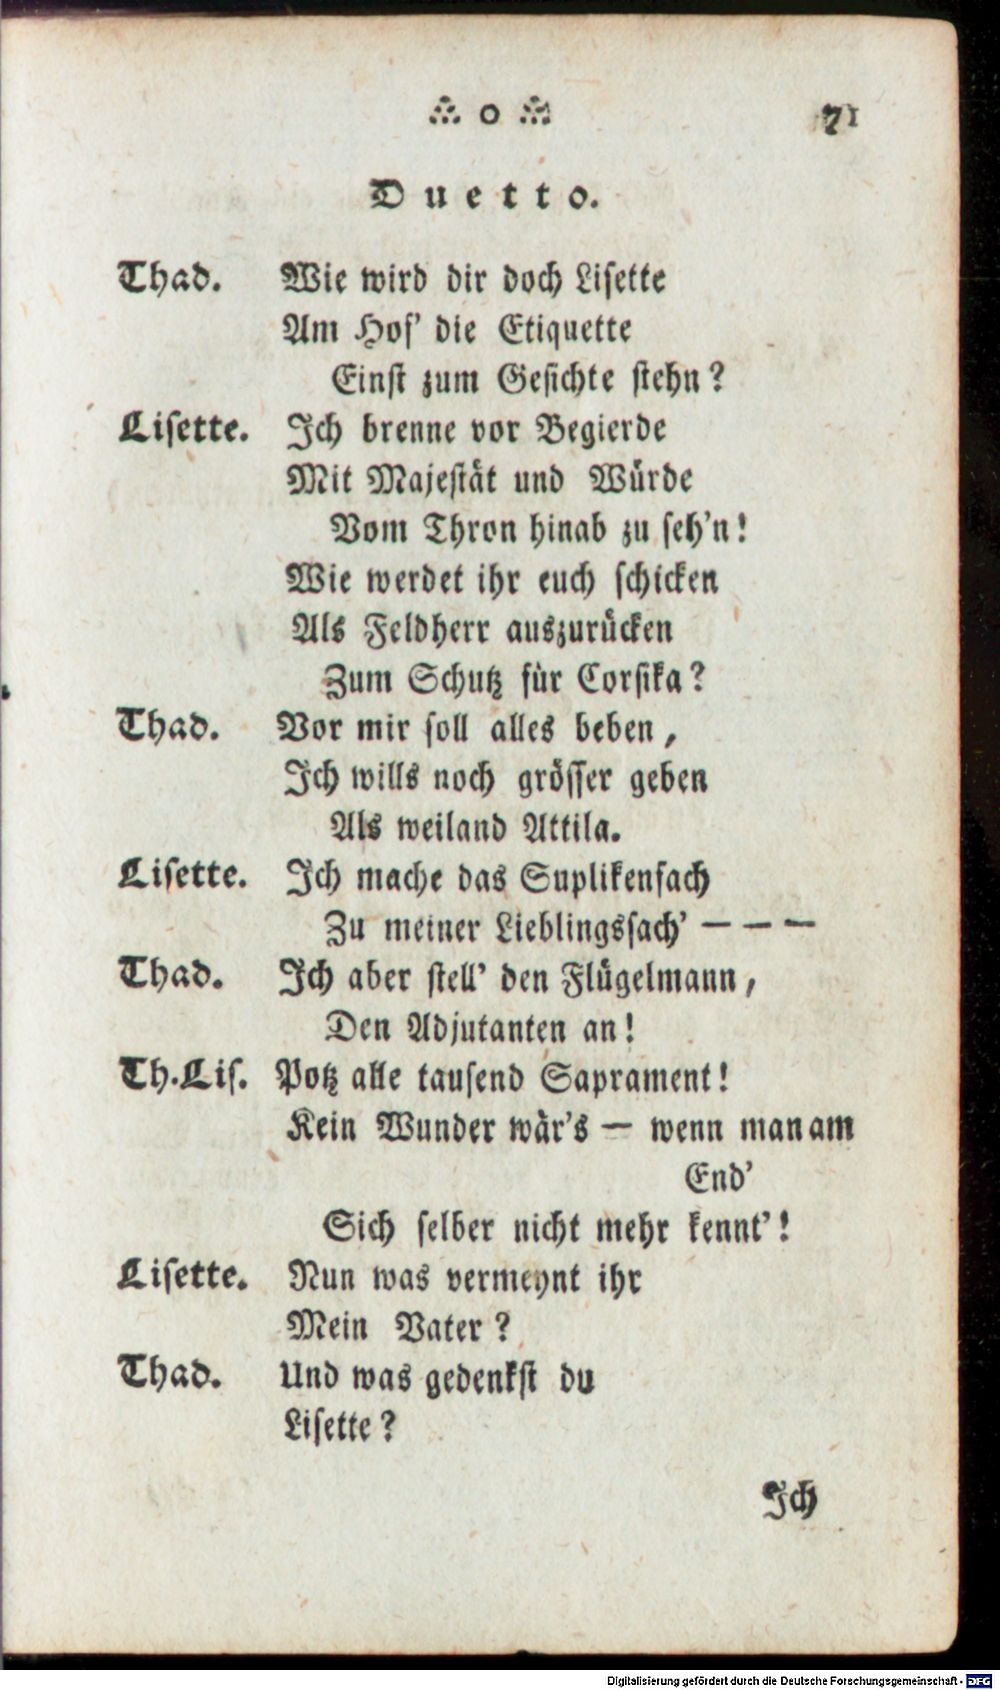 o 71
Duetto.
Thad. Wie wird dir doch Lisette
Am Hof' die Etiquette
Einst zum Gesichte stehn?
Lisette. Ich brenne vor Begierde
Mit Majestät und Würde
Vom Thron hinab zu seh'n!
Wie werdet ihr euch schicken
Als Feldherr auszurücken
Zum Schutz für Corsika?
Thad. Vor mir soll alles beben,
Ich wills noch grösser geben
Als weiland Attila.
Lisette. Ich mache das Suplikenfach
Zu meiner Lieblingssach' — — —
Thad. Ich aber stell' den Flügelmann,
Den Adjutanten an!
Th.Lis. Potz alle tausend Saprament!
Kein Wunder wär's — wenn man am
End'
Sich selber nicht mehr kennt'!
Lisette. Nun was vermeynt ihr
Mein Vater?
Thad. Und was gedenkst du
Lisette?
Ich
Digitalisierung gefördert durch die Deutsche Forschungsgemeinschaft - DFG